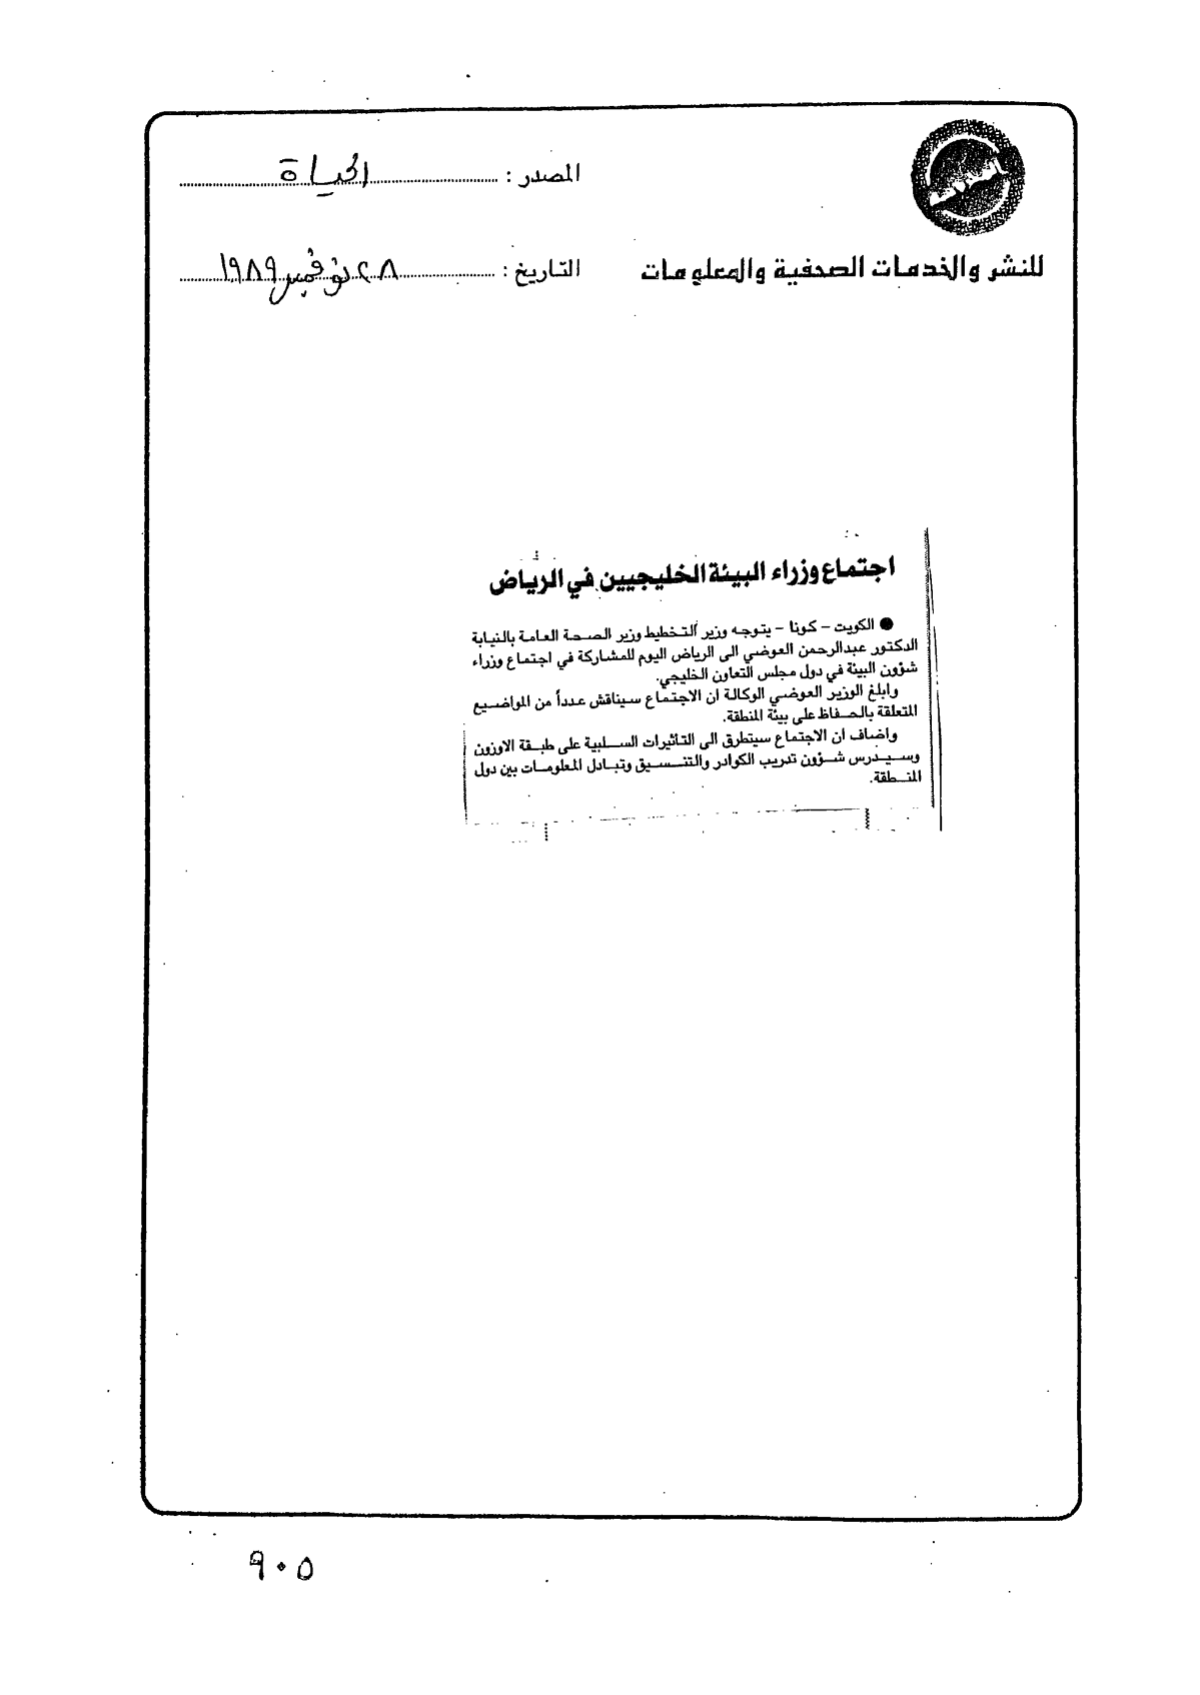 المصدر : الحياة
للنشر والخدمات الصحفية والمعلومات
التاريخ : ٢٨ نوفمبر ١٩٨٩
اجتماع وزراء البيئة الخليجيين في الرياض
● الكويت - كونا - يتوجه وزير التخطيط وزير الصحة العامة بالنيابة
الدكتور عبدالرحمن العوضي الى الرياض اليوم للمشاركة في اجتماع وزراء
شؤون البيئة في دول مجلس التعاون الخليجي.
وابلغ الوزير العوضي الوكالة ان الاجتماع سيناقش عدداً من المواضيع
المتعلقة بالحفاظ على بيئة المنطقة.
واضاف ان الاجتماع سيتطرق الى التاثيرات السلبية على طبقة الاوزون
وسيدرس شؤون تدريب الكوادر والتنسيق وتبادل المعلومات بين دول
المنطقة.
٩٠٥